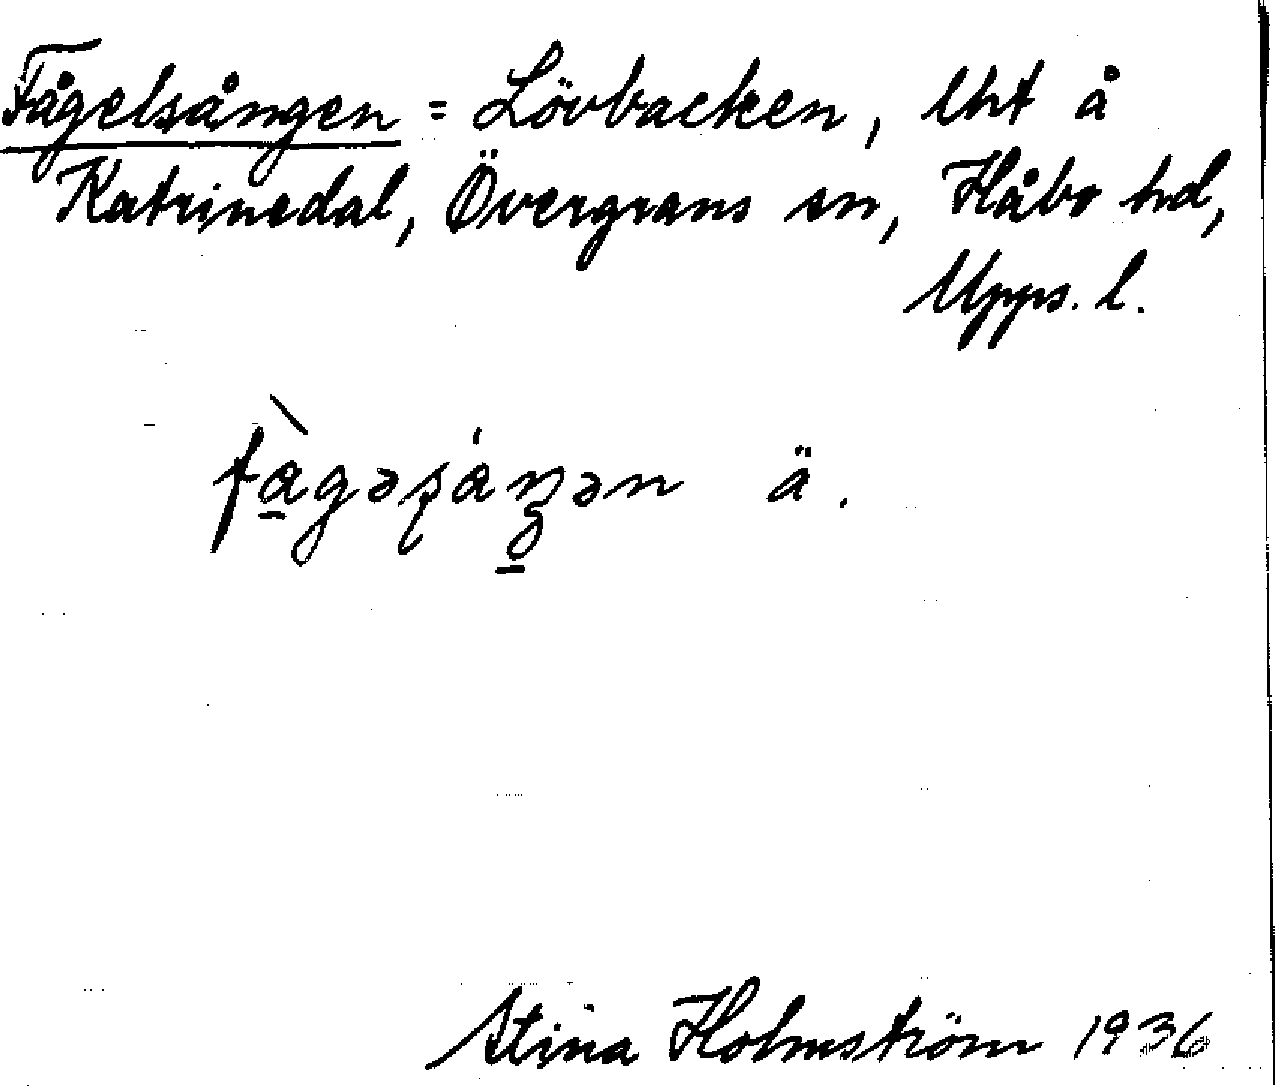 Fågelsången = Lövbacken, lht å
Katrinedal, Övergrans sn, Håbo hd,
Upps. l.
ä.
Stina Holmström 1936